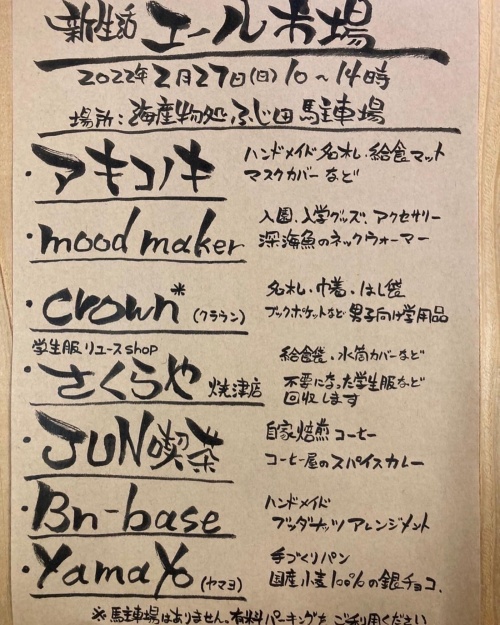 新生活 エール市場
2022年2月27日(日)10〜14時
場所:海産物処ふじ田 駐車場
・アキコノキ
ハンドメイド名札、給食マット
マスクカバーなど
・mood maker
入園、入学グッズ、アクセサリー
深海魚のネックウォーマー
・crown* (クラウン)
名札、巾着、はし袋
ブックポケットなど男子向け学用品
学生服リユースshop
・さくらや 焼津店
給食袋、水筒カバーなど
不要になった学生服など
回収します
・JUN喫茶
自家焙煎コーヒー
コーヒー屋のスパイスカレー
・Bn-base
ハンドメイド
ブッダナッツアレンジメント
・YamaYo (ヤマヨ)
手づくりパン
国産小麦100%の銀チョコ、
※駐車場はありません。有料パーキングをご利用ください